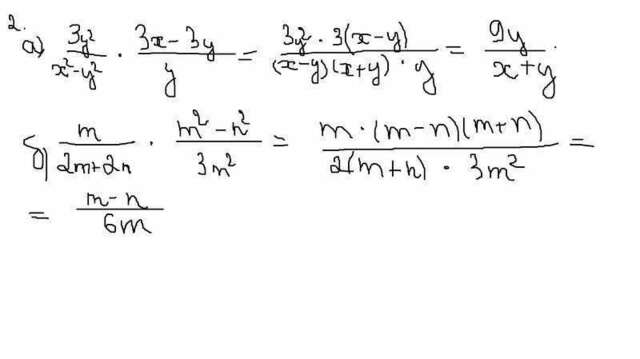 2.
а) 3y²/(x²-y²) · (3x-3y)/y = (3y²·3(x-y))/((x-y)(x+y)·y) = 9y/(x+y)
б) m/(2m+2n) · (m²-n²)/(3m²) = (m·(m-n)(m+n))/(2(m+n)·3m²) =
= (m-n)/(6m)